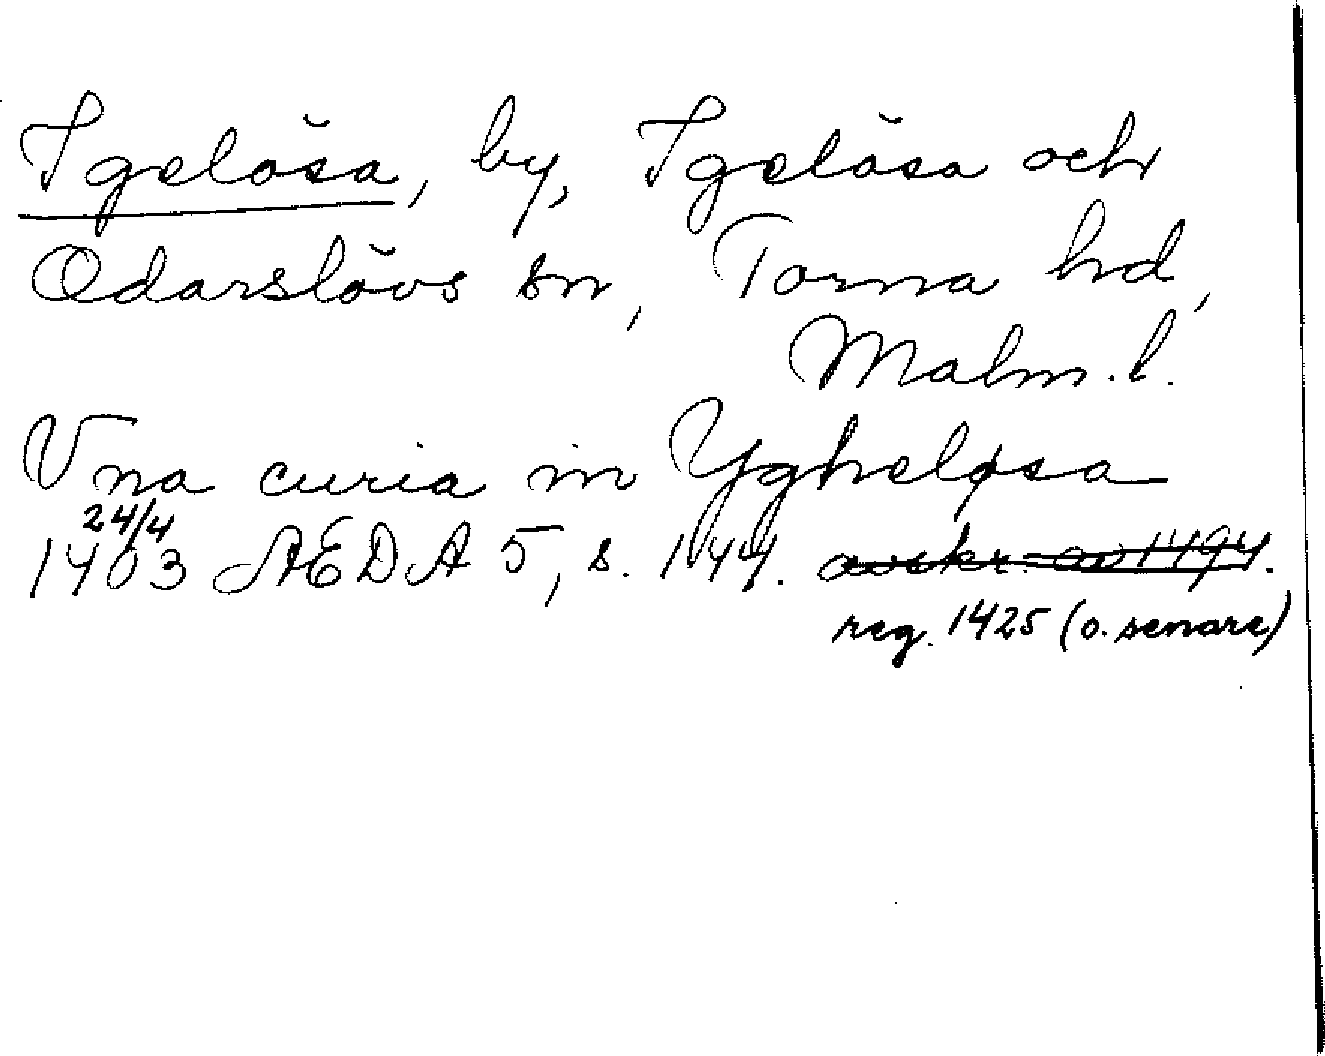 Igelösa, by, Igelösa och
Odarslövs sn, Torna hd,
Malm. l.
Vna curia in Ygheløsa
24/4
1403 AEDA 5, s. 144. avskr. av 1494.
reg. 1425 (o. senare)